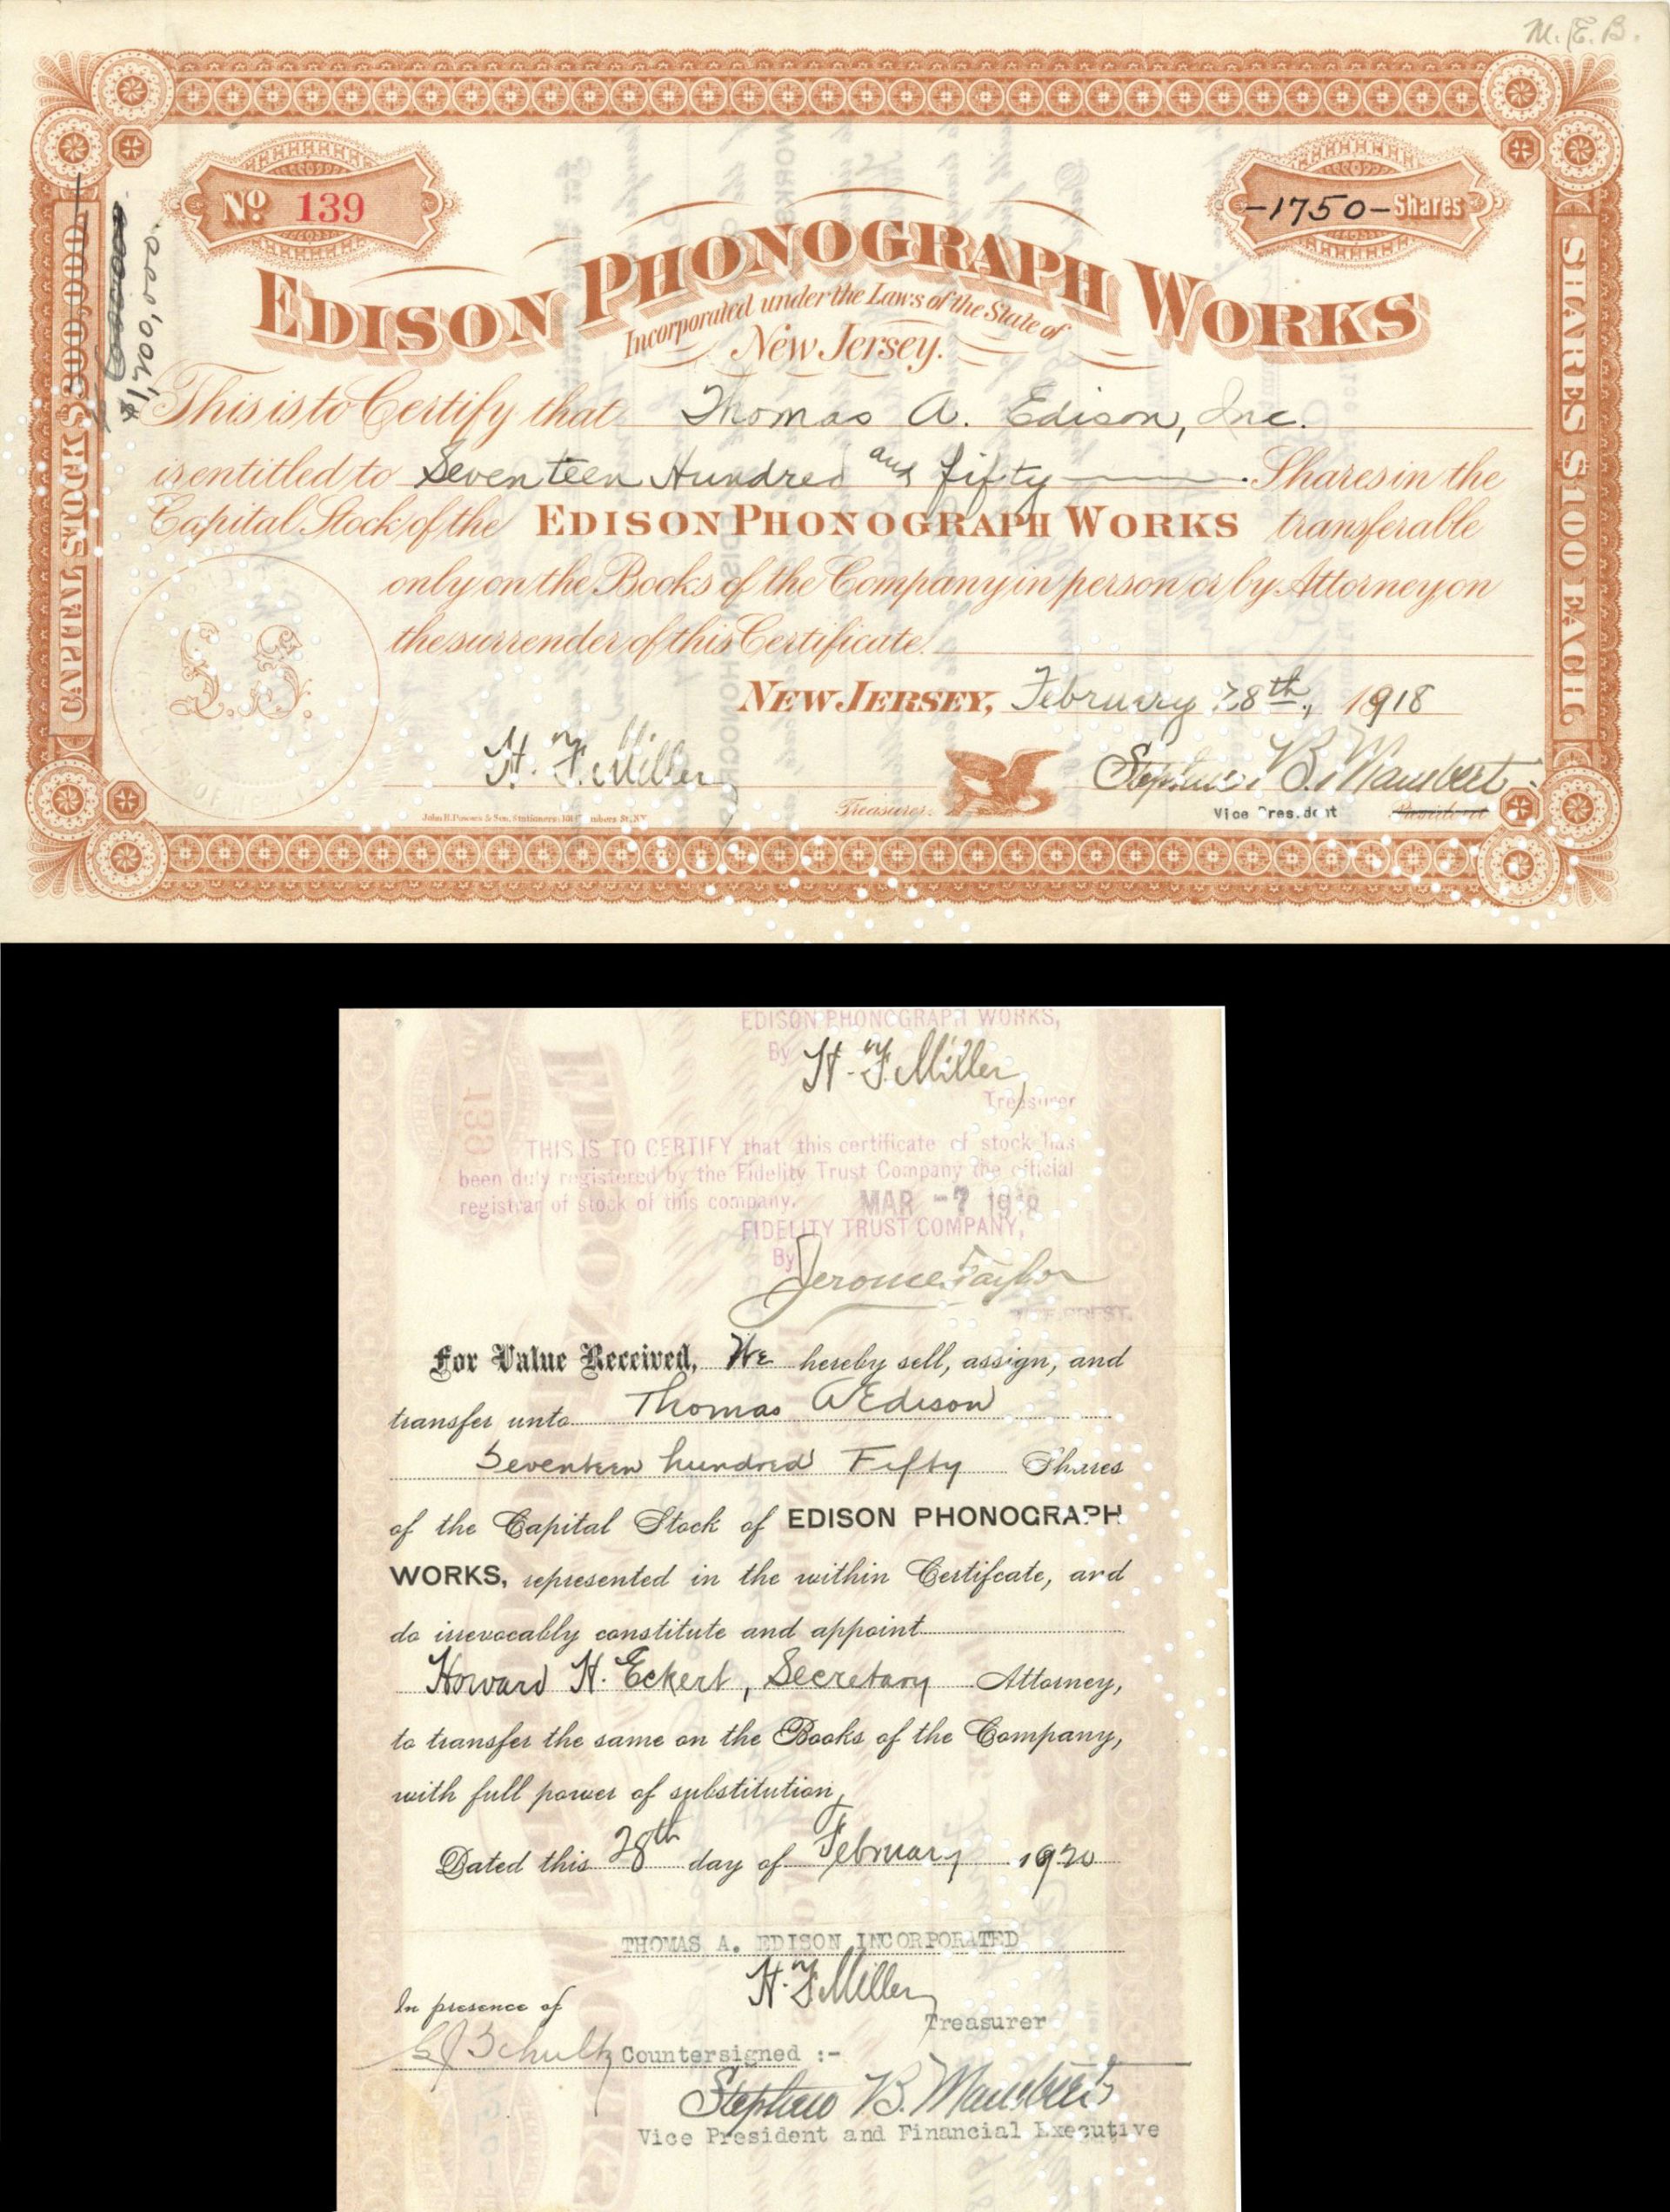 M. E. B.
Nº 139
-1750- Shares
EDISON PHONOGRAPH WORKS
Incorporated under the Laws of the State of
New Jersey.
CAPITAL STOCK $300,000
$1,700,000.
SHARES $100 EACH.
This is to Certify that Thomas A. Edison, Inc.
is entitled to Seventeen Hundred and fifty Shares in the
Capital Stock of the EDISON PHONOGRAPH WORKS transferable
only on the Books of the Company in person or by Attorney on
the surrender of this Certificate.
L.S.
NEW JERSEY, February 28th, 1918
H. F. Miller Stephen B. Mambert
Treasurer. Vice President President
John H. Powers & Son, Stationers, St, NY
EDISON PHONOGRAPH WORKS,
By H. F. Miller
Treasurer
THIS IS TO CERTIFY that this certificate of stock has
been duly registered by the Fidelity Trust Company the official
registrar of stock of this company. MAR -7 1918
FIDELITY TRUST COMPANY,
By Jerome Taylor
VICE PREST.
For Value Received, We hereby sell, assign, and
transfer unto Thomas A Edison
Seventeen hundred Fifty Shares
of the Capital Stock of EDISON PHONOGRAPH
WORKS, represented in the within Certifcate, and
do irrevocably constitute and appoint
Howard H. Eckert, Secretary Attorney,
to transfer the same on the Books of the Company,
with full power of substitution,
Dated this 28th day of February 1920
THOMAS A. EDISON INCORPORATED
H. F. Miller
In presence of
Treasurer
Schultz Countersigned :-
Stephen B. Mambert
Vice President and Financial Executive